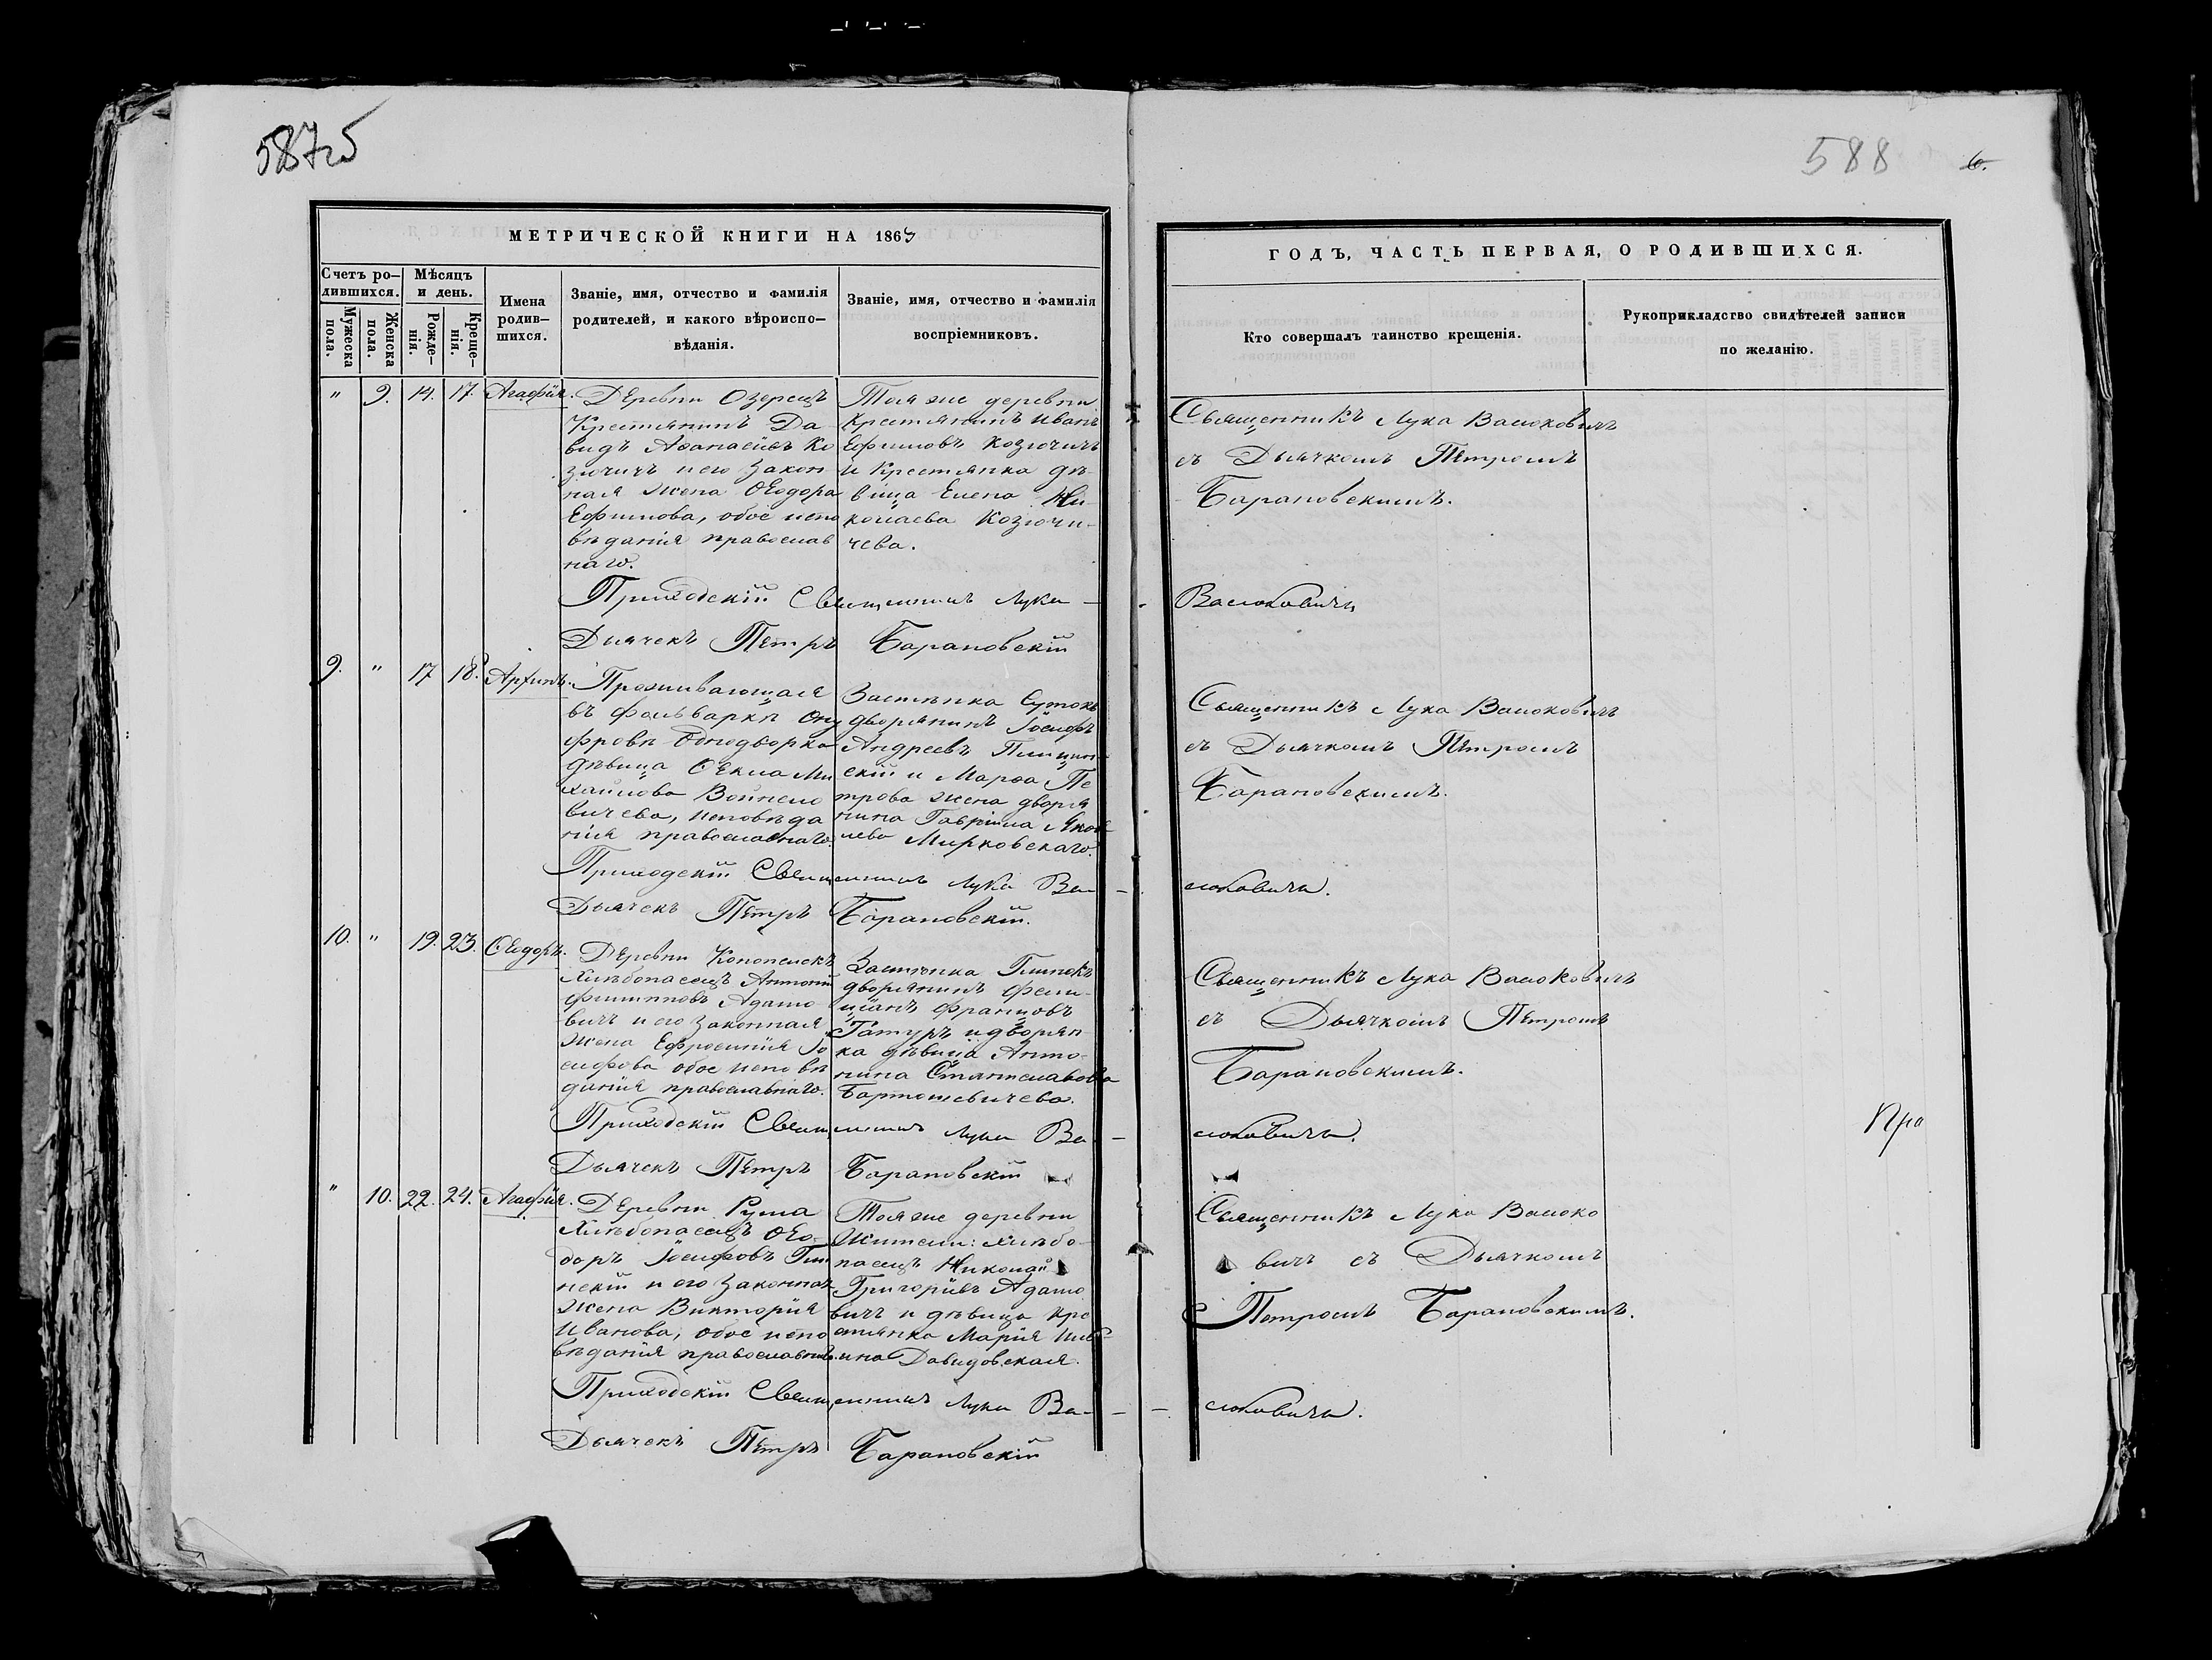 587об
588 6.
МЕТРИЧЕСКОЙ КНИГИ НА 1863
ГОДЪ, ЧАСТЬ ПЕРВАЯ, О РОДИВШИХСЯ.
Счетъ ро-
дившихся.
Мужеска
пола.
Женска
пола.
Мѣсяцъ
и день.
Рожде-
нія.
Креще-
нія.
Имена
родив-
шихся.
Званіе, имя, отчество и фамилія
родителей, и какого вѣроиспо-
вѣданія.
Званіе, имя, отчество и фамилія
воспріемниковъ.
Кто совершалъ таинство крещенія.
Рукоприкладство свидѣтелей записи
по желанію.
" 9. 14. 17. Агафія.
Деревни Озерецъ
Крестьянинъ Да-
видъ Аѳанасіевъ Ко
зючичъ и его закон-
ная жена Ѳеодора
Ефимова, обое испо
вѣданія православ
наго.
Тоя же деревни
Крестьянинъ Иванъ
Ефимовъ Козючичъ
и Крестьянка дѣ-
вица Елена Ни-
колаева Козючи-
чева.
Священникъ Лука Васюковичъ
съ Дьячкомъ Петромъ
Барановскимъ.
Приходскій Священникъ Лука - Васюковичъ
Дьячекъ Петръ Барановскій
9. " 17 18. Архипъ.
Проживающая
въ фольваркѣ Ону
фровѣ Однодворка
дѣвица Ѳекла Ми
хайлова Войнело
вичева, исповѣда
нія православнаго.
Застѣнка Сутокъ
дворянинъ Іосифъ
Андреевъ
скій и Марѳа Пе
трова жена дворя
нина Гавріила Яков
лева Мирковскаго.
Священникъ Лука Васюковичъ
съ Дьячкомъ Петромъ
Барановскимъ.
Приходскій Священникъ Лука Ва- сюковичъ.
Дьячекъ Петръ Барановскій.
10. " 19. 23. Ѳеодоръ.
Деревни
Хлѣбопашецъ Антоній
Филипповъ Адамо
вичъ и его законная
жена Ефросинія Іо
сифова обое исповѣ
данія православнаго.
Застѣнка Глинокъ
дворянинъ Фели-
ціанъ Францовъ
Гатуръ и дворян-
ка дѣвица Анто-
нина Станиславова
Бартошевичева.
Священникъ Лука Васюковичъ
съ Дьячкомъ Петромъ
Барановскимъ.
Приходскій Священникъ Лука Ва- сюковичъ.
Пра
Дьячекъ Петръ Барановскій
" 10. 22. 24. Агафія.
Деревни Рума
Хлѣбопашецъ Ѳео-
доръ Іосифовъ Гли
нскій и его законная
жена Викторія
Иванова, обое испо
вѣданія православн.
Тоя же деревни
Жители: хлѣбо-
пашецъ Николай
Григоріевъ Адамо
вичъ и дѣвица кре
стьянка Марія
ина Давидовская.
Священникъ Лука Васюко
вичъ съ Дьячкомъ
Петромъ Барановскимъ.
Приходскій Священникъ Лука Ва- сюковичъ.
Дьячекъ Петръ Барановскій